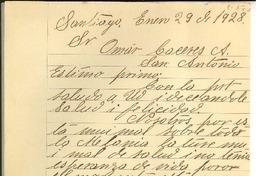 Santiago, Enero 29 de 1928
Sr
Omar Caceres A.
San Antonio
Estimo primo:
Con la pte
saludo a Ud i deceandole
salud i felicidad
Nosotros por es
ta mui mal sobre todo
la Melania la tuve mu
i mal de salud i no tenia
esperanza de vida, por